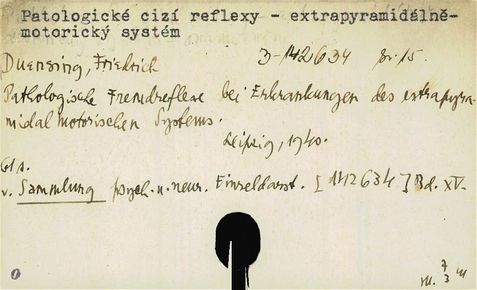 Patologické cizí reflexy - extrapyramidálně-
motorický systém
Duensing, Friedrich D-142634 Sv. 15.
Pathologische Fremdreflexe bei Erkrankungen des extrapyra-
midal motorischen Systems.
Leipzig, 1940.
v. Sammlung psych. u. neur. Einzeldarst. [142634] Bd. XV.